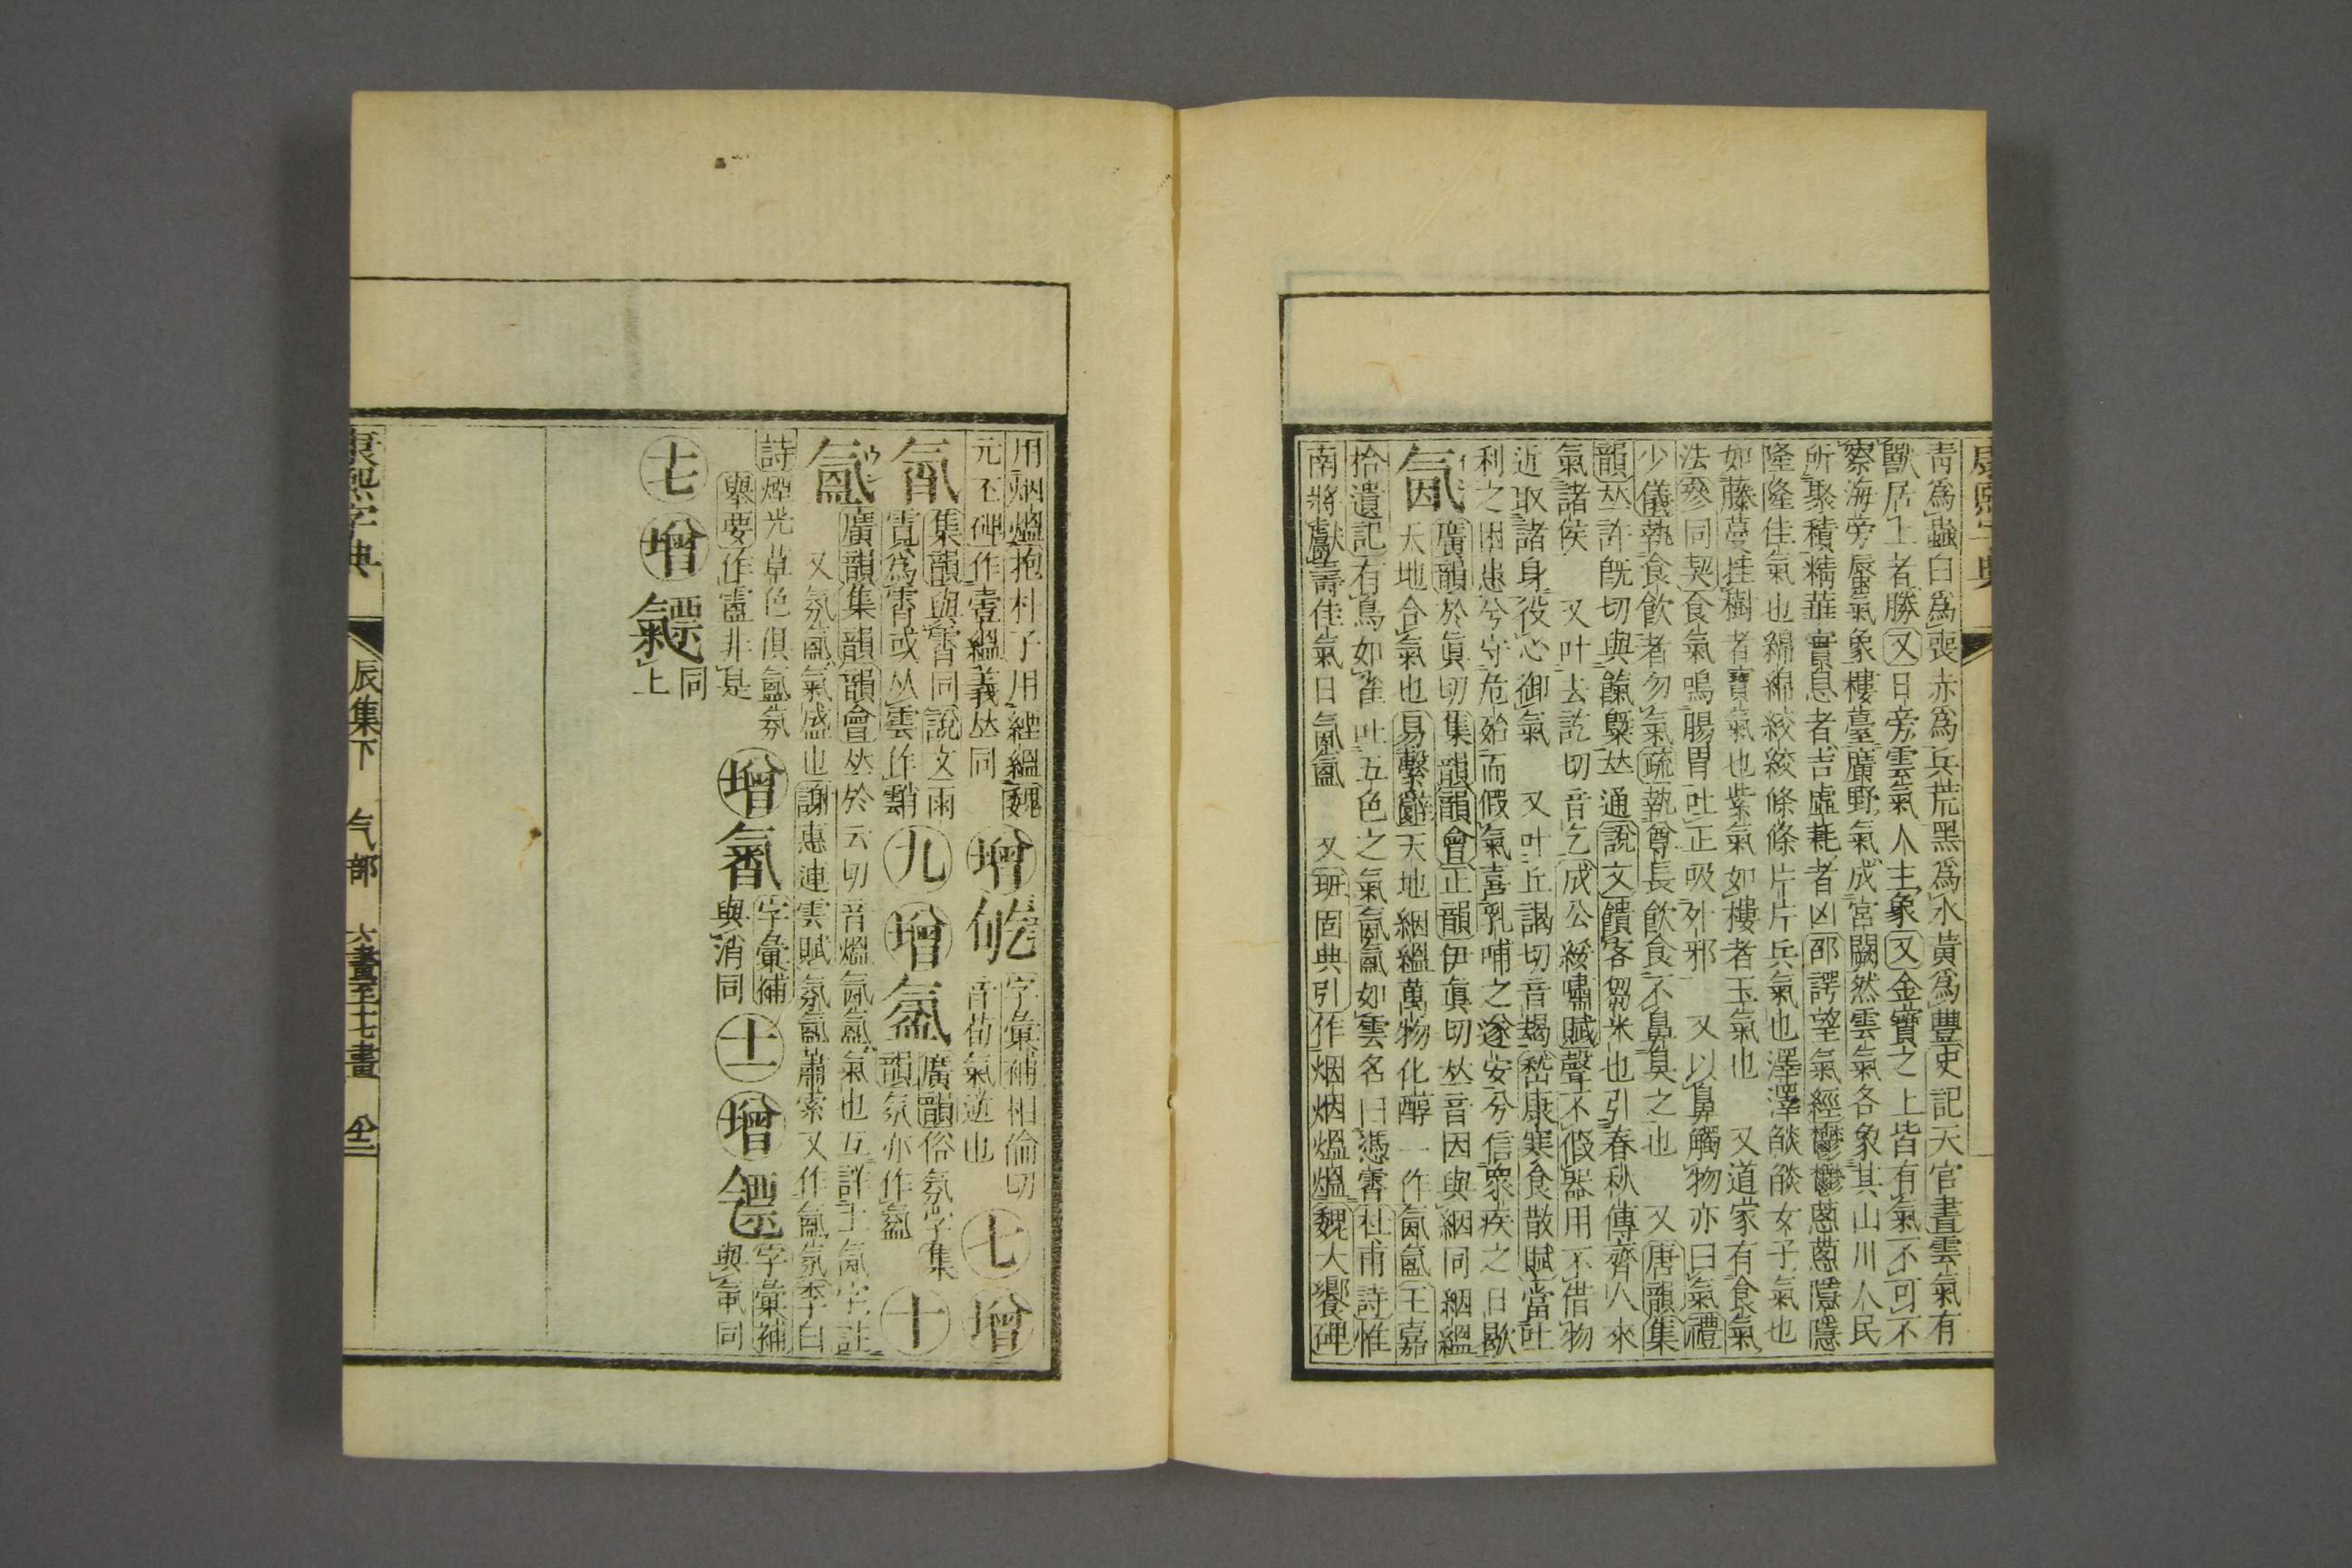 康熙字典
靑爲蟲白爲喪赤爲兵荒黑爲水黃爲豐史記天官書雲氣有
獸居上者勝又日旁雲氣人主象又金寶之上皆有氣不可不
察海旁蜃氣象樓臺廣野氣成宮闕然雲氣各象其山川人民
所聚積精華實息者吉虛耗者凶邵諤望氣經鬱鬱蔥蔥隱隱
隆隆佳氣也綿綿絞絞條條片片兵氣也澤澤燄燄女子氣也
如藤蔓挂樹者寶氣也紫氣如樓者玉氣也 又道家有食氣
法參同契食氣鳴腸胃吐正吸外邪 又以鼻觸物亦曰氣禮
少儀執食飮者勿氣疏執尊長飮食不鼻臭之也 又唐韻集
韻𠀤許旣切與餼槩𠀤通說文饋客芻米也引春秋傳齊人來
氣諸侯 又叶去訖切音乞成公綏嘯賦聲不假器用不借物
近取諸身役心御氣 又叶丘謁切音朅嵇康寒食散賦當吐
利之困患兮守危殆而假氣喜乳哺之遂安兮信衆疾之日歇
氤 廣韻於眞切集韻韻會正韻伊眞切𠀤音因與絪同絪縕
天地合氣也易繫辭天地絪縕萬物化醇一作氤氳王嘉
拾遺記有鳥如雀吐五色之氣氤氳如雲名曰憑霄杜甫詩惟
南將獻壽佳氣日氤氳 又班固典引作烟烟熅熅魏大饗碑
用烟熅抱朴子用縜縕魏
元丕碑作壹縕義𠀤同
增
字彙補相倫切
音荀氣逆也
七 增
氞
集韻與霄同說文雨
霓爲霄或从雲作䨭
九 增 氥
廣韻俗氛字集
韻氛亦作氥
十
氳
廣韻集韻韻會𠀤於云切音熅氤氳氣也互詳上氤字註
又氛氳氣盛也謝惠連雪賦氛氳蕭索又作氳氛李白
詩煙光草色俱氳氛
舉要作䨱非是
增
字彙補
與消同
十一 增
字彙補
與氞同
十七 增
同
上
康熙字典 辰集下 气部 六畫至十七畫 卆二